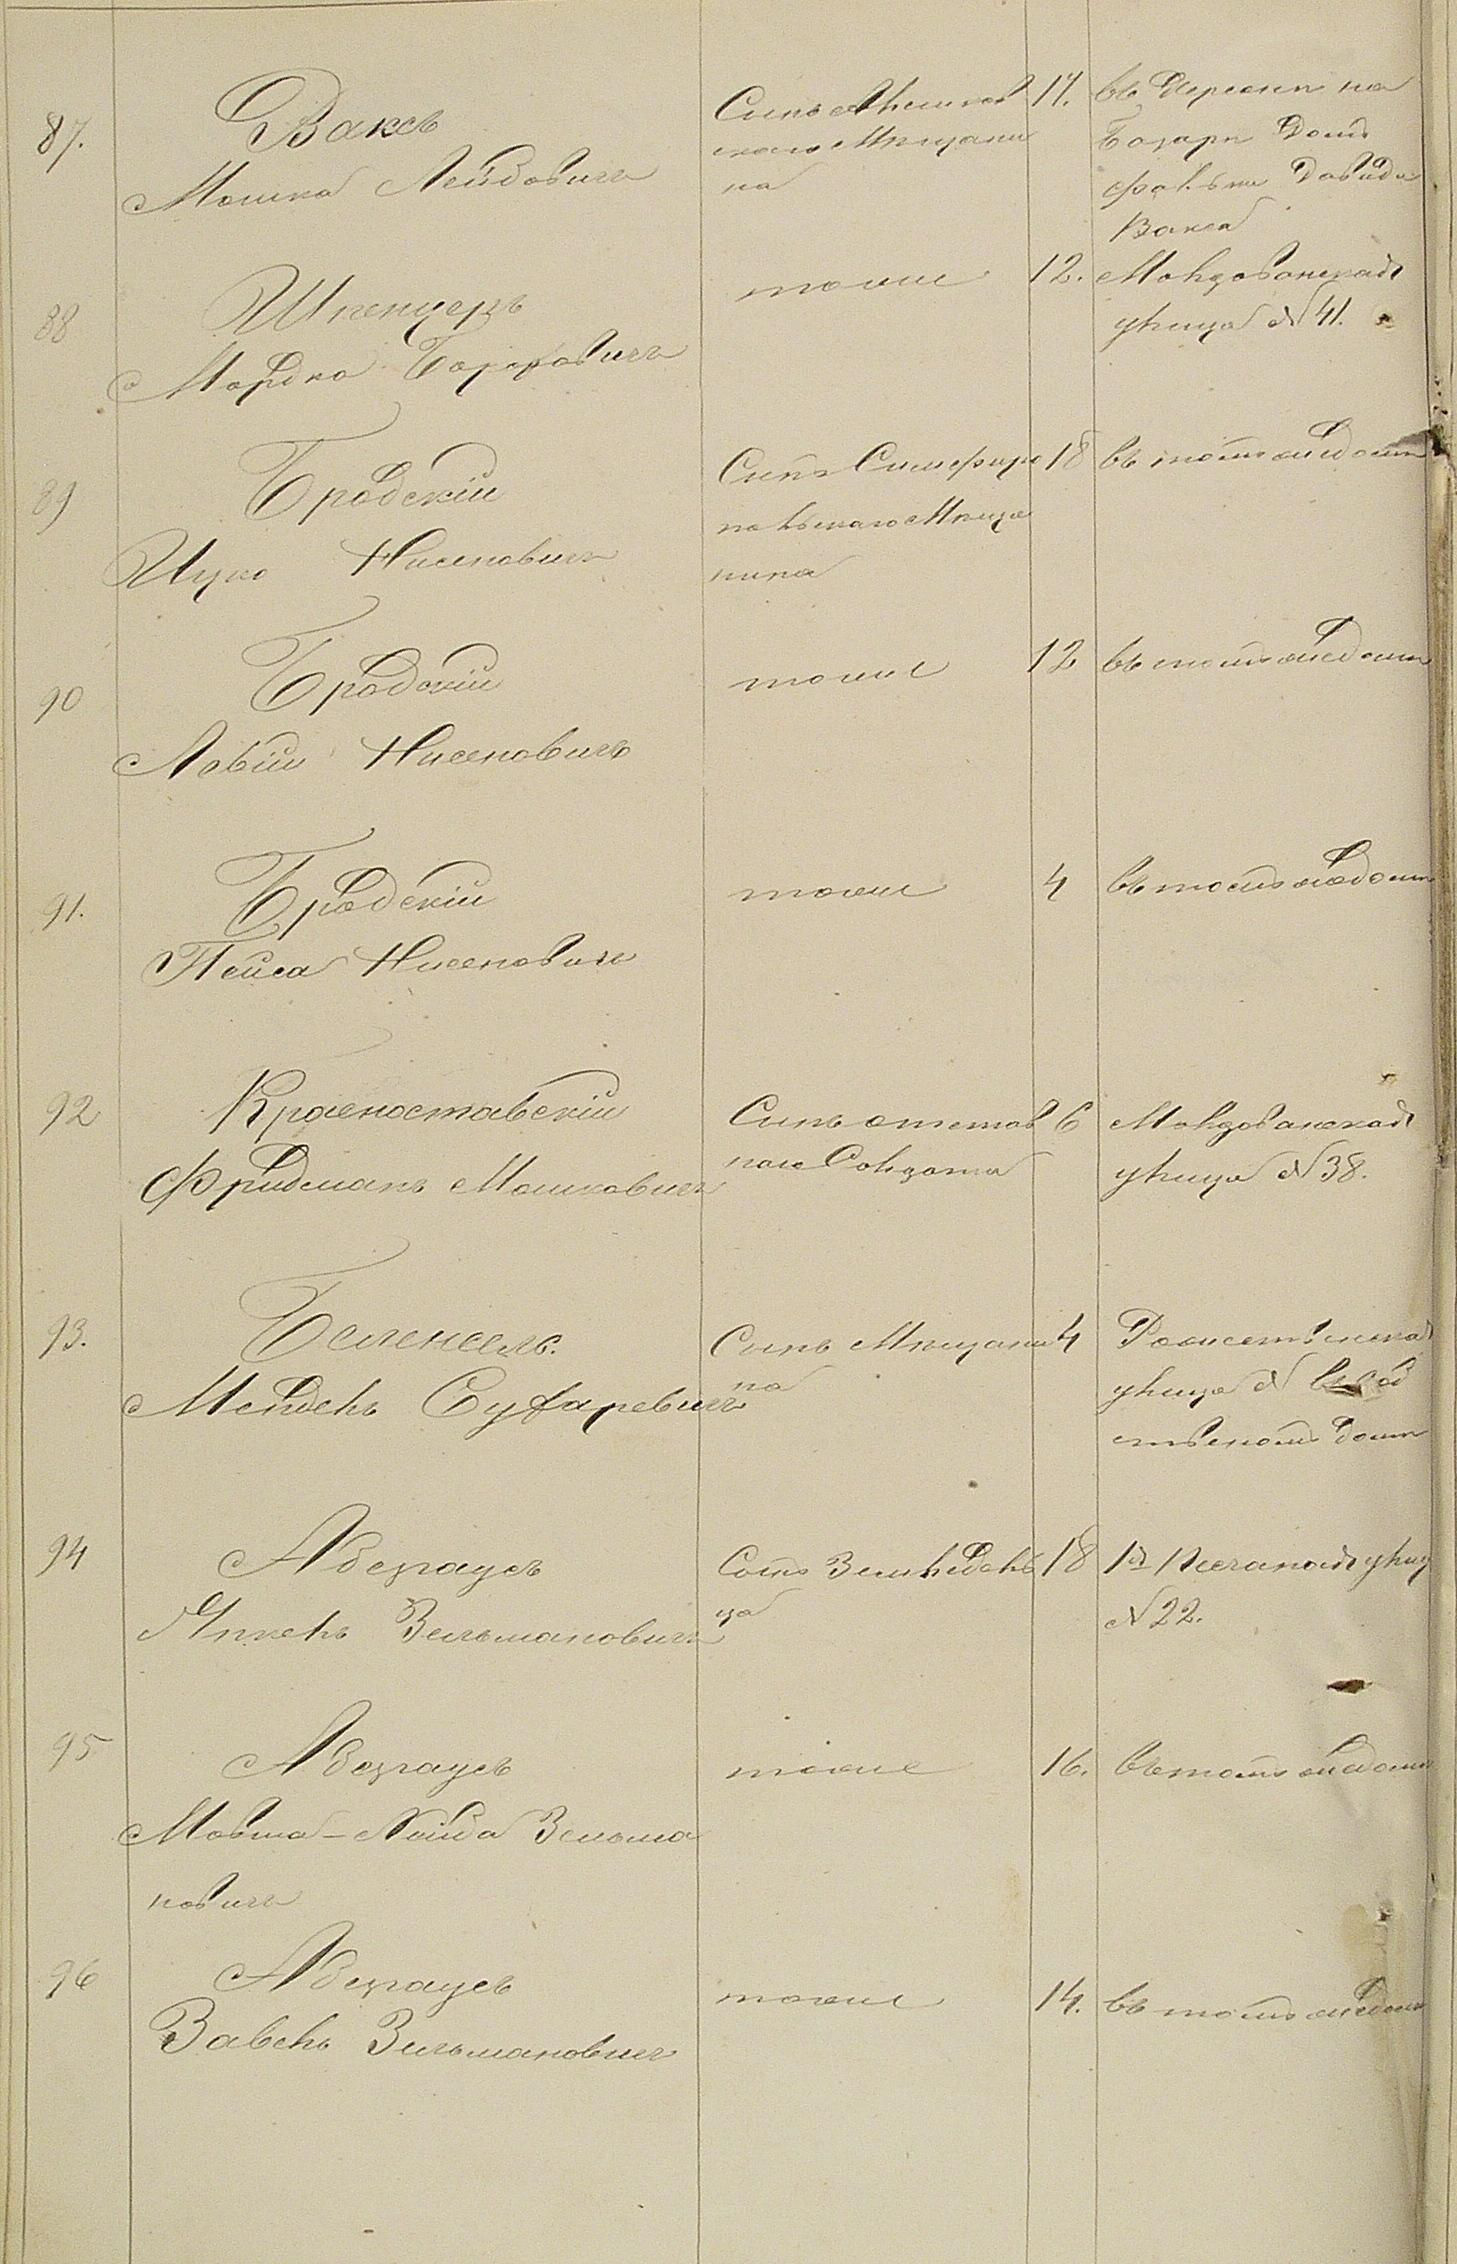 87.
Ваксъ
Мошка Лейбовичъ
Сынъ Алешков
скаго Мѣщани
на
17.
въ Херсонѣ на
базарѣ домъ
Давида
Вакса
88
Шпенцеръ
Мордко Борховичъ
тоже
12.
Молдованская
улица № 41.
89
Бродскій
Ицко Нисеновичъ
Сынъ Симферо
польскаго Мѣща
нина
18
въ томъ же домѣ
90
Бродскій
Лейви Нисеновичъ
тоже
12
въ томъ же домѣ
91.
Бродскій
Пейса Нисеновичъ
тоже
4
въ томъ же домѣ
92
Красноставскій
Фридманъ Мошковичъ
Сынъ отстав
наго Солдата
6
Молдованская
улица № 38.
93.
Мендель
Сынъ Мѣщани
на
4
улица № въ соб
ственномъ домѣ
94
Абезгаусъ
Янкель Зельмановичъ
Сынъ Земледѣль
ца
18
1я Песчаная улиц
№ 22.
95
Абезгаусъ
Мовша - Зельма
новичъ
тоже
16.
въ томъ же домѣ
96
Абезгаусъ
Завель Зельмановичъ
тоже
14.
въ томъ же домѣ